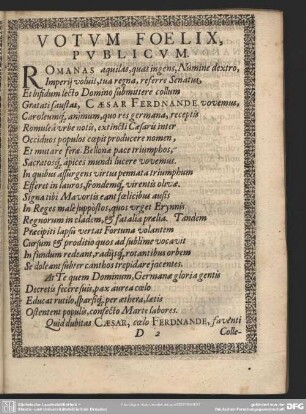 VOTVM FOELIX,
PVBLICVM.
ROMANAS aquilas, quat ingens, Numine dextro,
Imperij voluit, tua regna, referre Senatus,
Et bifidum lecto Domino submittere collum
Gratati faustas, CÆSAR FERDNANDE vovemus,
Caroleumq́, animum, quo res germana, receptis
Romuleâ vrbe notis, extincti Cæsaris inter
Occiduos populos cœpit producere nomen,
Et mutare feræ Bellonæ pace triumphos,
Sacratosq́, apices mundi lucere vovemus.
In quibus assurgens virtus pennata triumphum
Efferet in lauros, frondemq́, virentis olivæ.
Signa tibi Mavortis eant fœlicibus ausis
In Reges malè suppositos, quos vrget Erynnis
Regnorum in cladem, & fatalia prælia. Tandem
Præcipiti lapsu vertat Fortuna volantem
Cursum & proditio quos ad sublime vocavit
In fundum redeant, radijsq́, rotantibus orbem
Se doleant subter canthos trepidare jacentes.
At Te quem Dominum, Germanæ gloria gentis
Decretis fecêre suis, pax aurea cœlo
Educat rutilo, sparsisq́, per æthera, lætis
Ostentet populis, confecto Marte labores.
Quid dubitas CÆSAR, cœlo FERDNANDE, faventi
D 2 Colle-